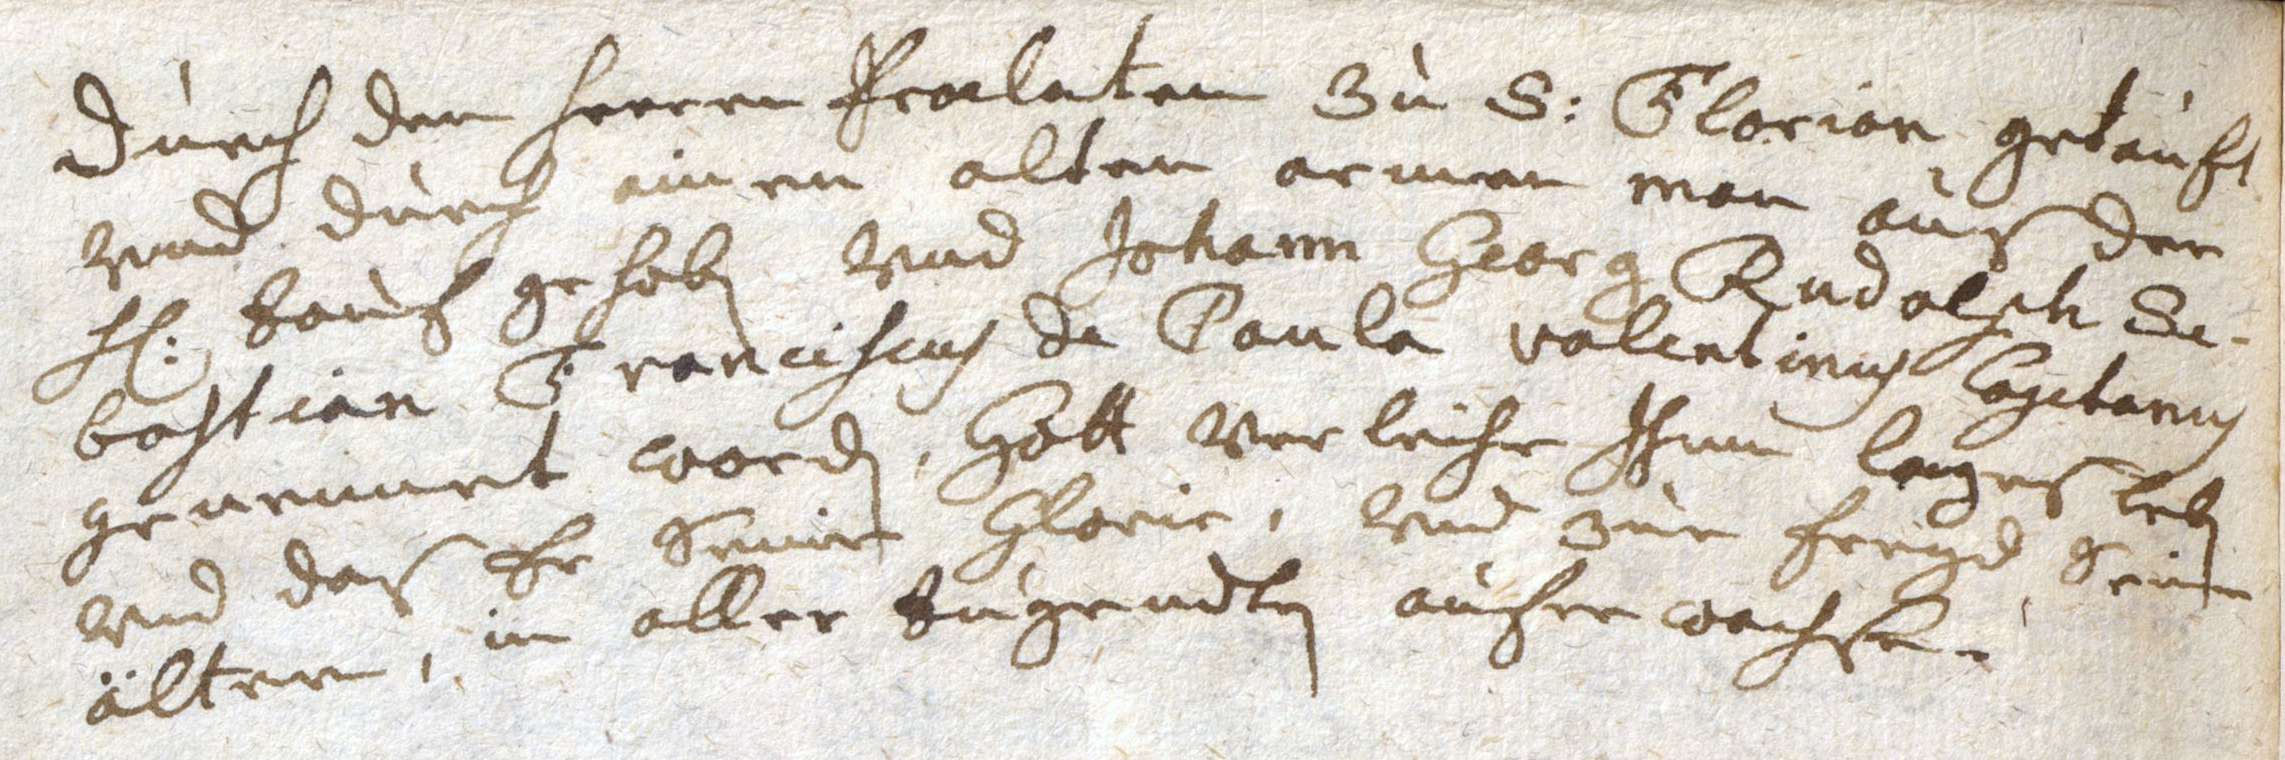 durch den herren Praelaten zu S: Florian getauft
vnnd durch ainen alten armen man auß der
hl: tauf gehobn vnd Johann Georg Rudolph Se-
bastian Franciscus de Paula valentinus Cajetanus
genennet wordn, Gott verleihe Ihme langes lebn
vnd daß Er Seine Glorie, vnd zur freyd Seinen
ältern, in aller tugendten auferwachse.